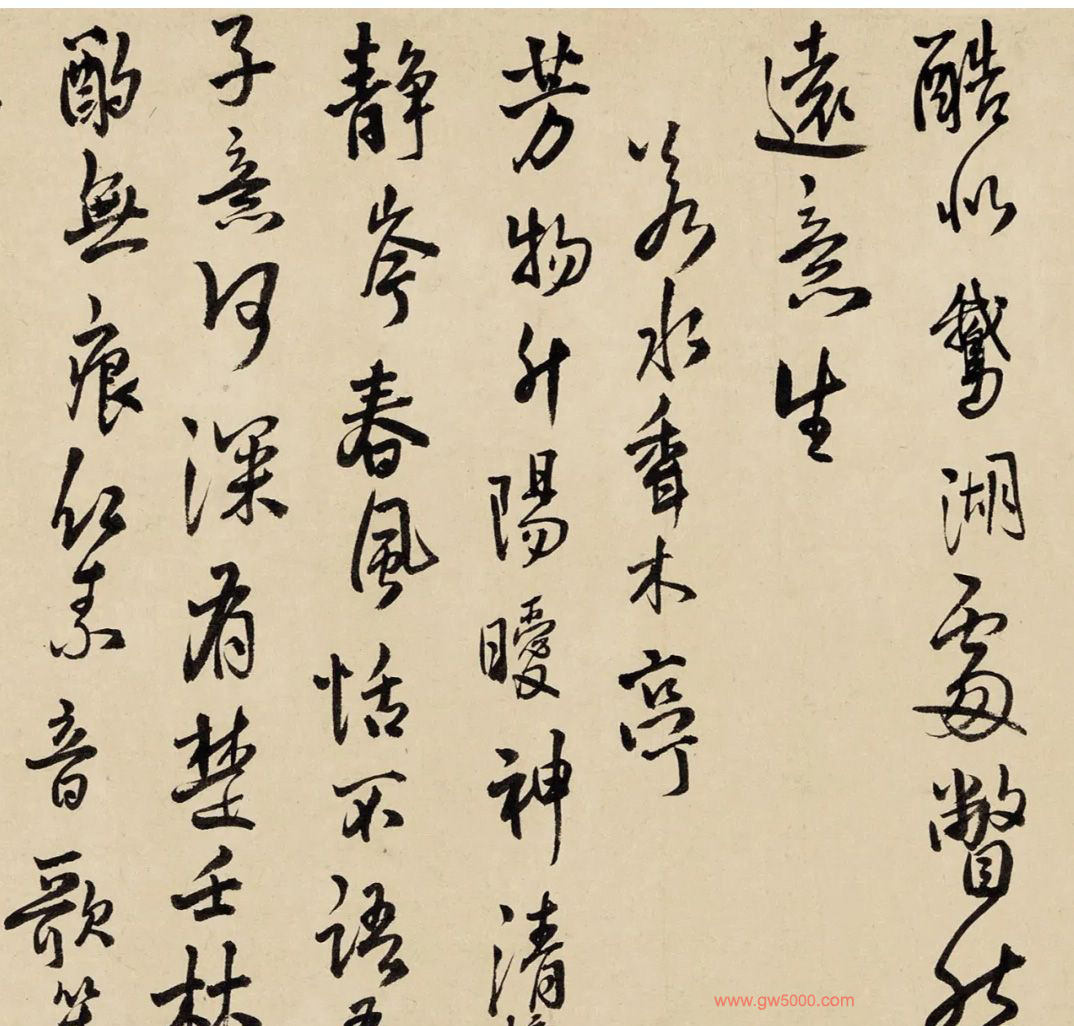 酷似鵝湖處瞥然
遠意生
若水香木亭
芳物升陽曖神清
静岑春風恬不語
子意何深有楚壬林
酌無痕紅素音歌
www.gw5000.com